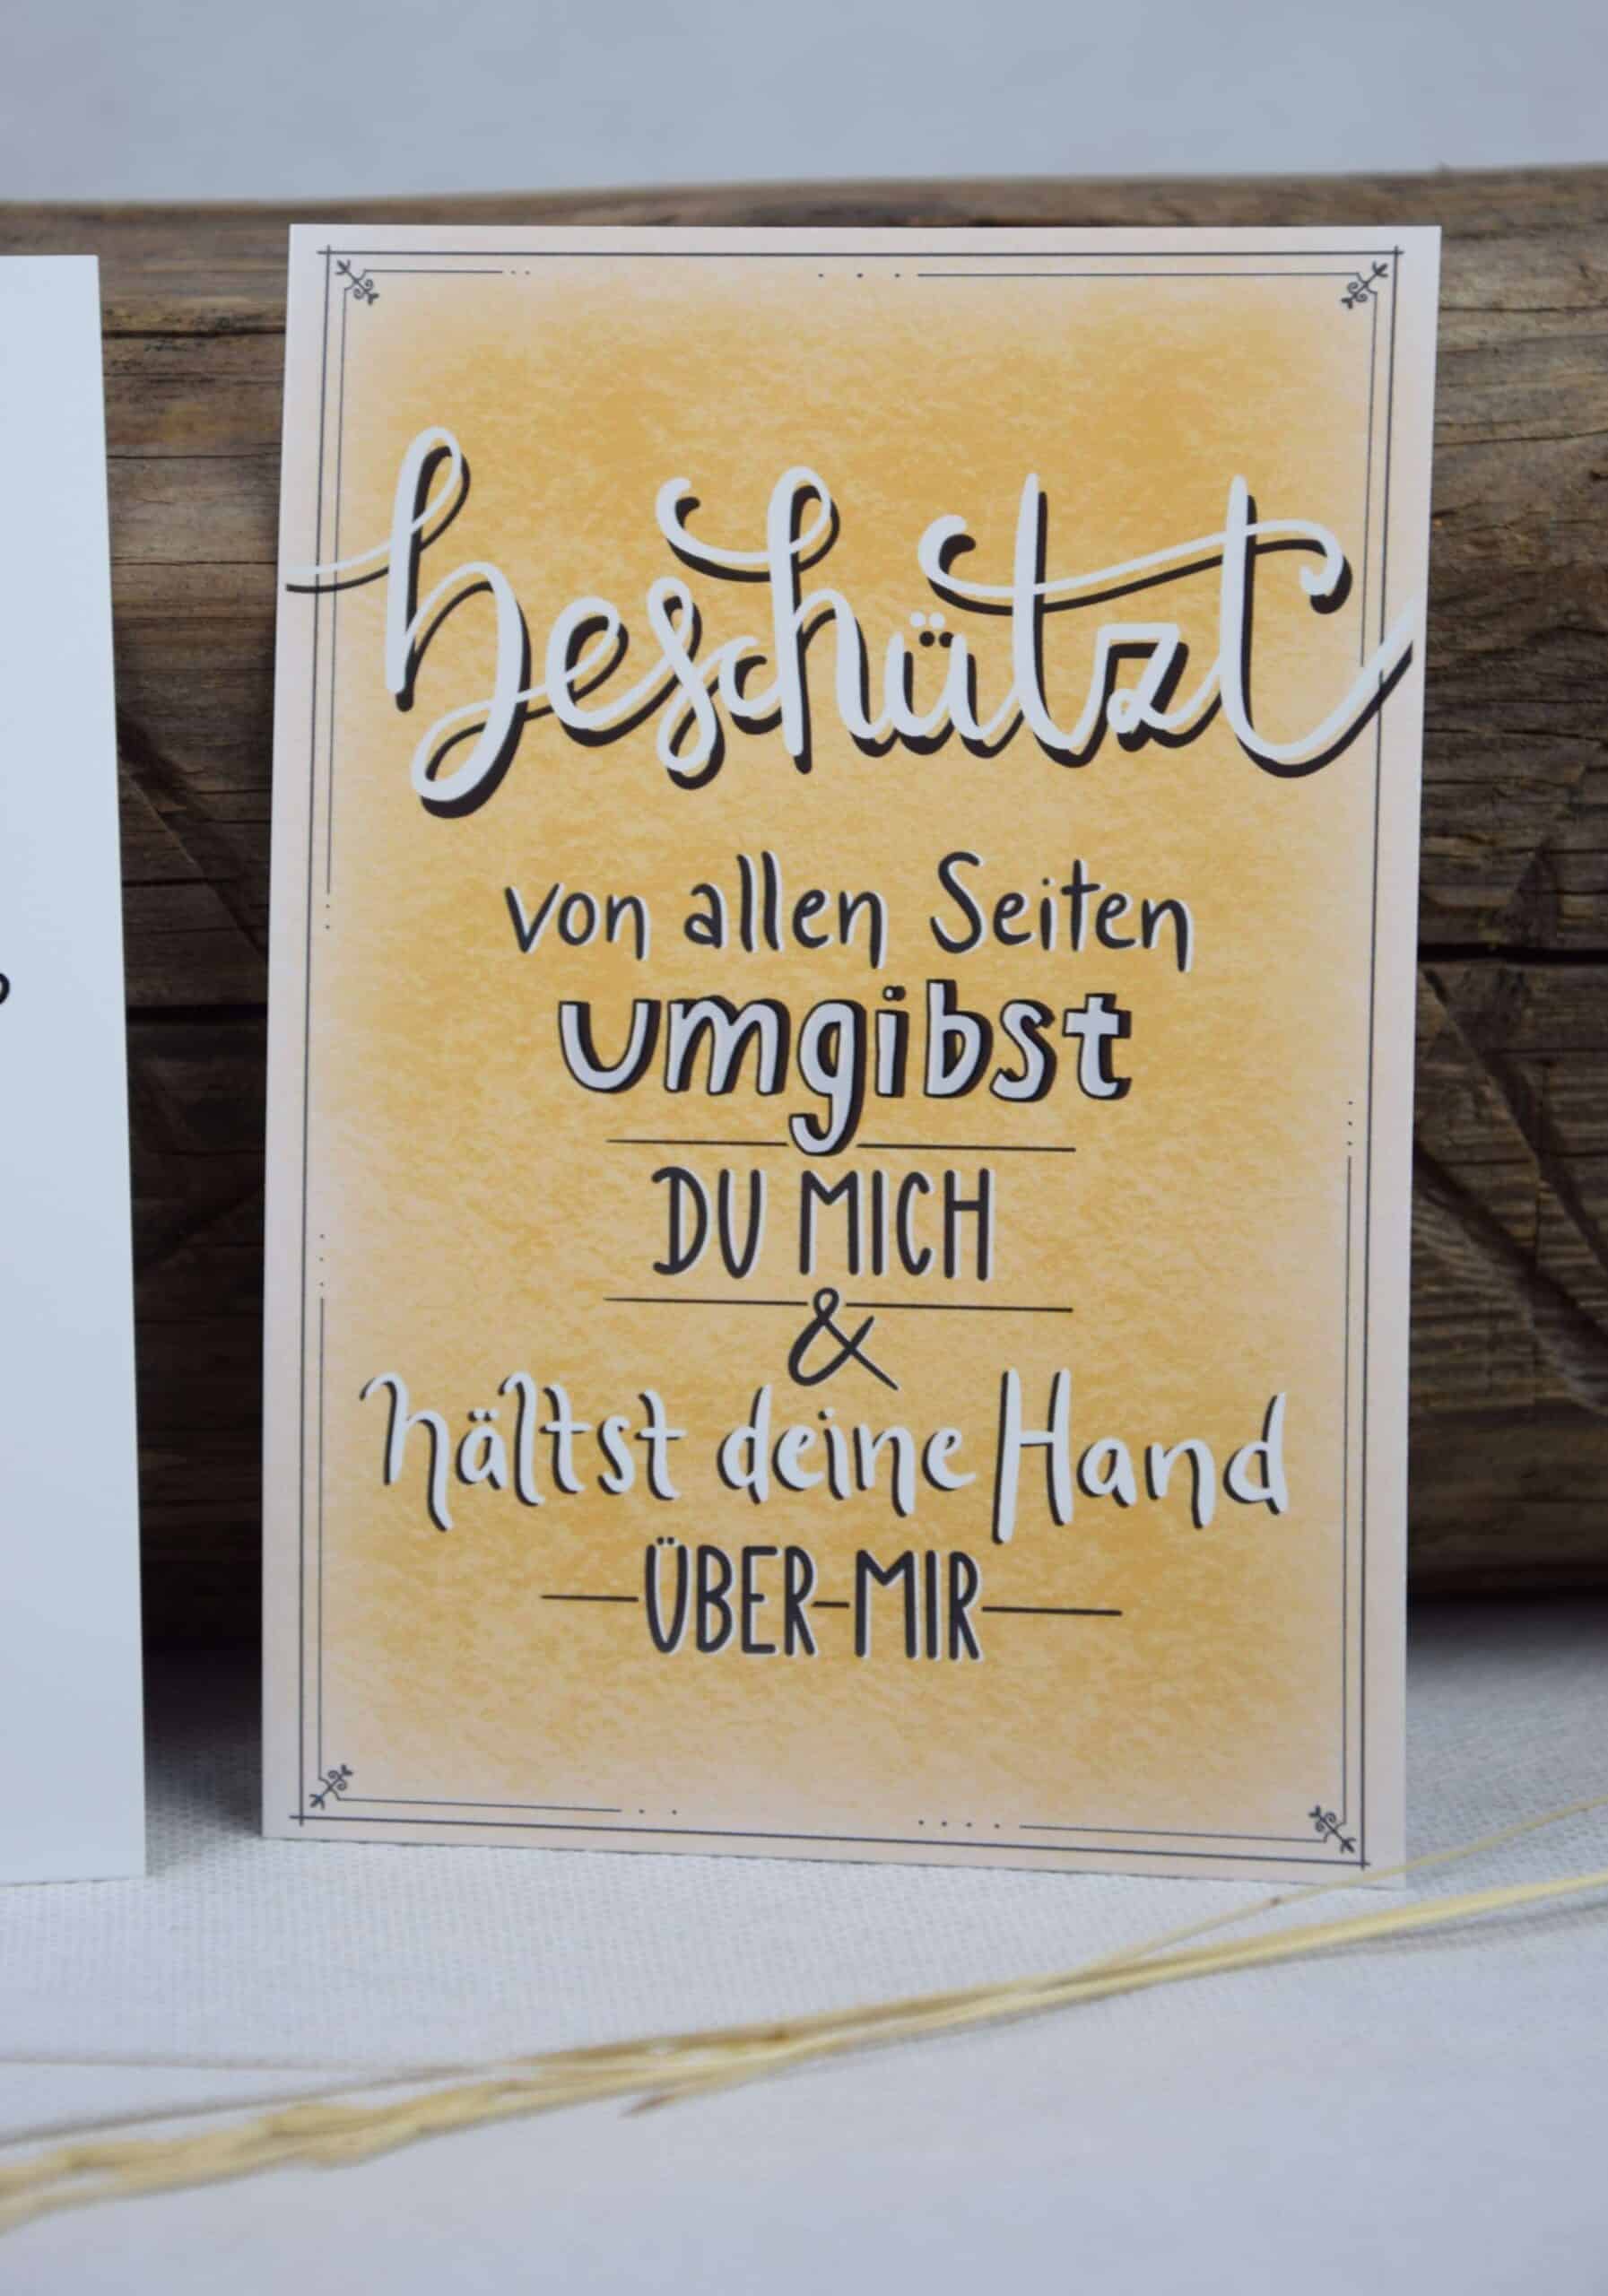 beschützt
von allen Seiten
umgibst
DU MICH
&
hältst deine Hand
ÜBER-MIR